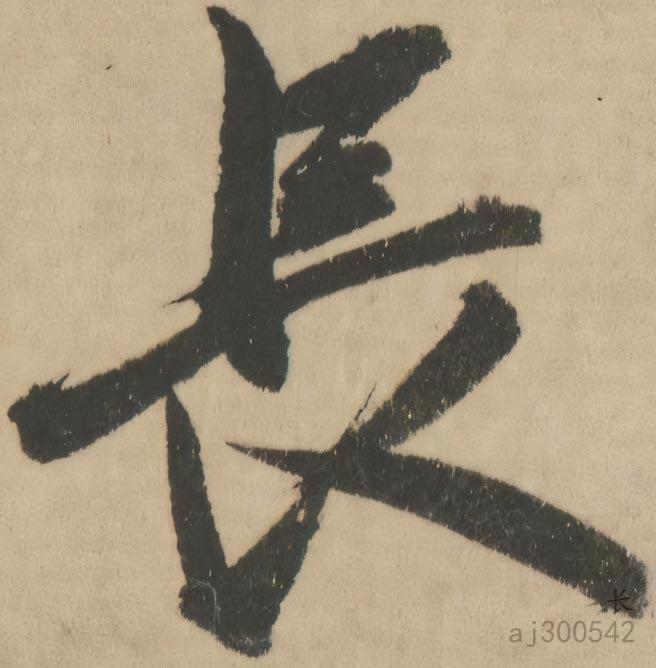 長
长
aj300542